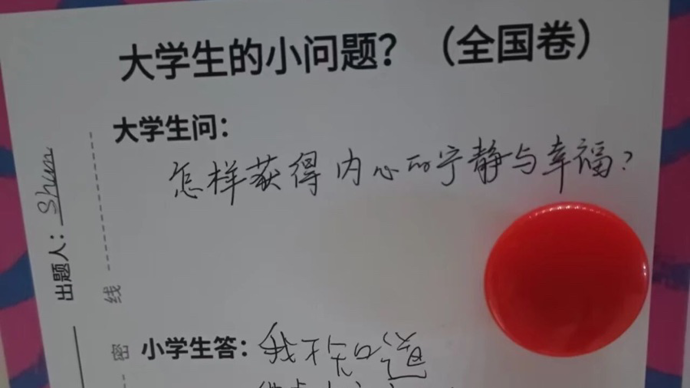 大学生的小问题？（全国卷）
大学生问：
怎样获得内心的宁静与幸福？
出题人：Shun
线
密
小学生答：我不知道